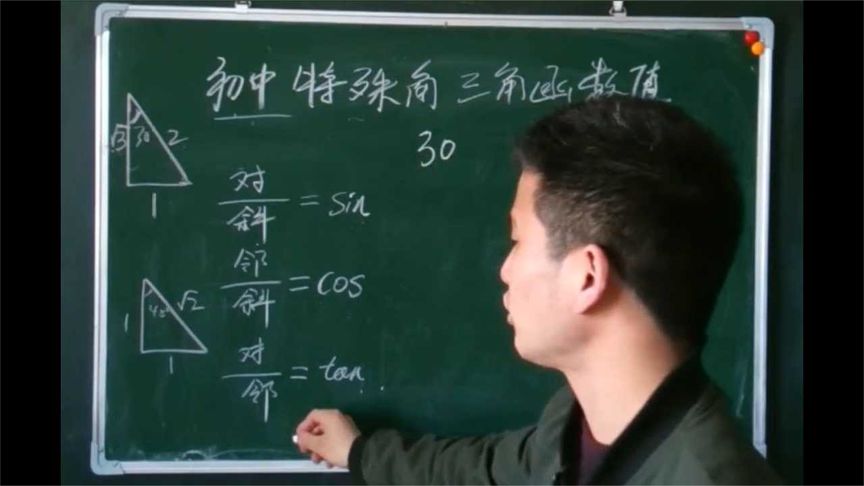 初中特殊角三角函数值
30
√3 30 2
1
对/斜 = sin
邻/斜 = cos
对/邻 = tan
1 45 √2
1